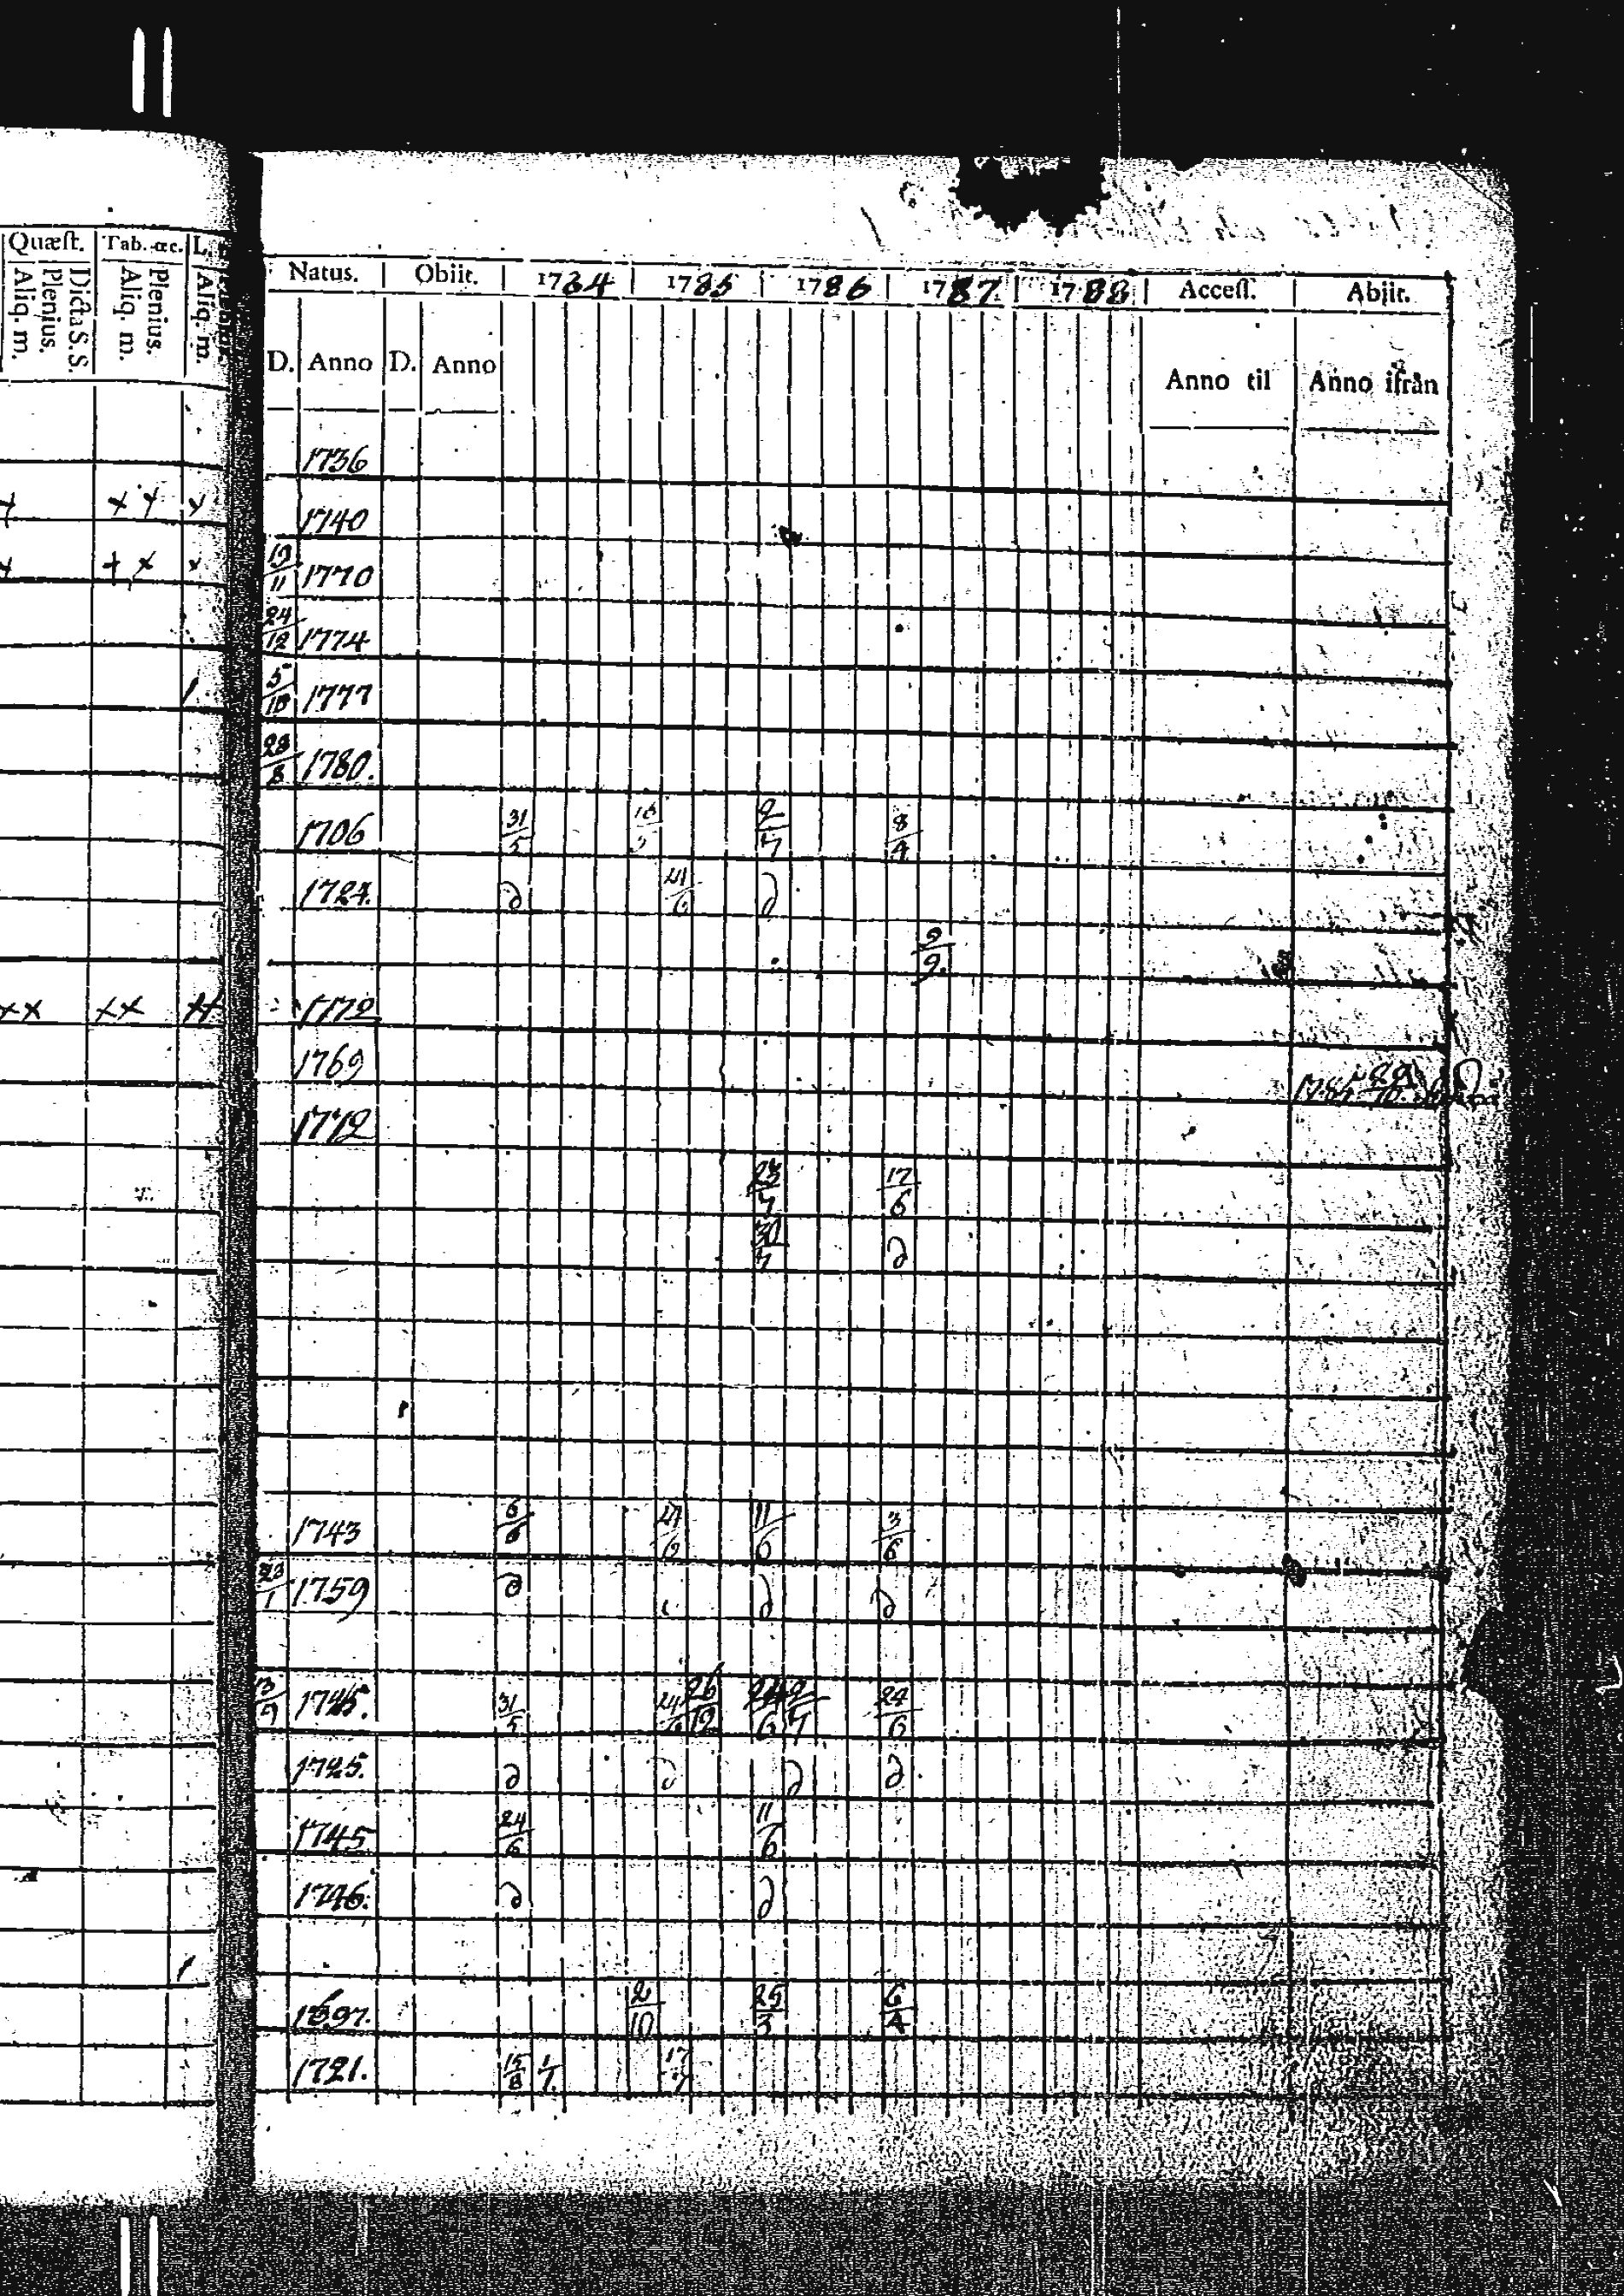 Quæſt. Tab. œc. L.
Dicta S. S. Plenius. Aliq. m. Plenius. Aliq. m. Aliq. m.
Natus. Obiit. 1784 1785 1786 1787 1788 Acceſſ. Abiit.
D. Anno D. Anno Anno til Anno ifrån
1736
x x x 1740
+ x x 11 1770
24/12 1774
5/10 1777
28/8 1780.
1706 31/5 2/7 8/4
1724. d d
9/9.
xx xx 1772
1769 1785
1772
23/7 17/6
30/7 d
1743 6/6 11/6 3/6
23/1 1759 d d d
13/9 1745. 31/5 24/6 26/12 24/6 2/7 24/6
1725. d d d d
1745 24/6 11/6
1746. d d
1697. 2/10 25/3 6/4
1721. 15/6 1/7 17/7